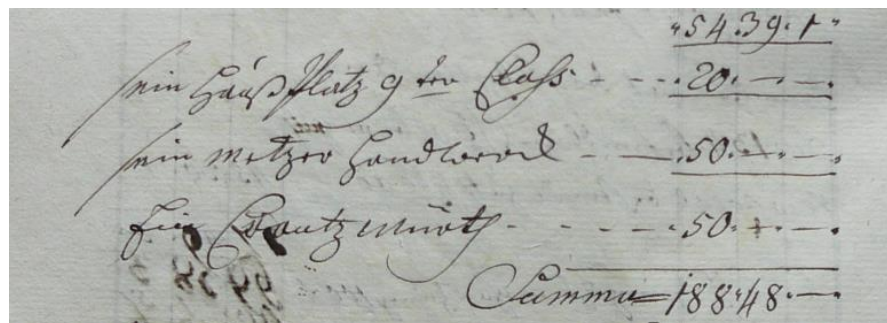 "54.39.1"
sein Haußplatz 9 ter Class - - - - .20. — — .
sein metzger Handtwerck - — .50. — — .
Ein Crantz Würth - - - - - .50. — — .
Summa = 188.48. —